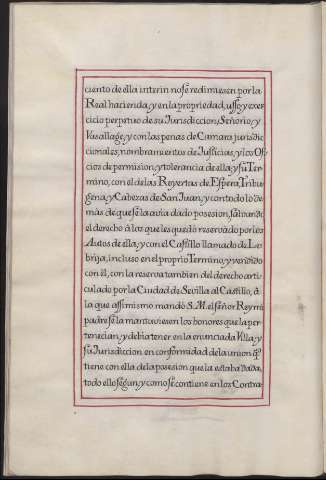 ciento de ella interin nosê redimiesen por la
Real hacienda, y en la propriedad, uso, y exer-
cicio perpetuo de su Jurisdiccion, Señorio, y
Vasallage, y con las penas de Camara jurisdic-
cionales, nombramientos de Justicias, y los Ofi-
cios de permision, y tolerancia de ella, y sû Ter-
mino, con el de las Reyertas de Espera, Tribu-
gena, y Cabezas de San Juan, y con todo lo de-
mas de que sê la avia dado posesion, salvando
el derecho â los que les quedó reservado por los
Autos de ella; y con el Castillo llamado de Le-
brija, incluso en el proprio Termino, y vendido
con êl, con la reserva tambien del derecho arti-
culado por la Ciudad de Sevilla al Castillo, â
la que assimismo mandó S. M. el señor Rey mi
padre sê la mantuviesen los honores que la per-
tenecian, y debia tener en la enunciada Villa, y
sû Jurisdiccion, en conformidad de la union qᵉ
tiene con ella de la posesion que la estaba dada,
todo ello segun, y como sê contiene en los Contra-